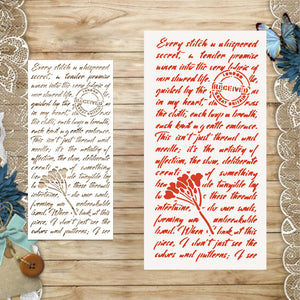 Every stitch a whispered
secret, a tender promise
woven into the very fabric of
our shared life.
guided by the
in my heart,
the cloth, each
each knot a gentle embrace.
This isn't just thread and
needle; it's the artistry of
affection, the slow, deliberate
creati of something
tangible by
to these threads
intertwine, our souls,
forming an unbreakable
bond. When look at this
piece, I don't just see the
colors and patterns; I see
RECEIVED
Every stitch a whispered
secret, a tender promise
woven into the very fabric of
our shared life.
guided by the
in my heart,
the cloth, each
each knot a gentle embrace.
This isn't just thread and
needle; it's the artistry of
affection, the slow, deliberate
creati of something
tangible by
to these threads
intertwine, our souls,
forming an unbreakable
bond. When look at this
piece, I don't just see the
colors and patterns; I see
RECEIVED